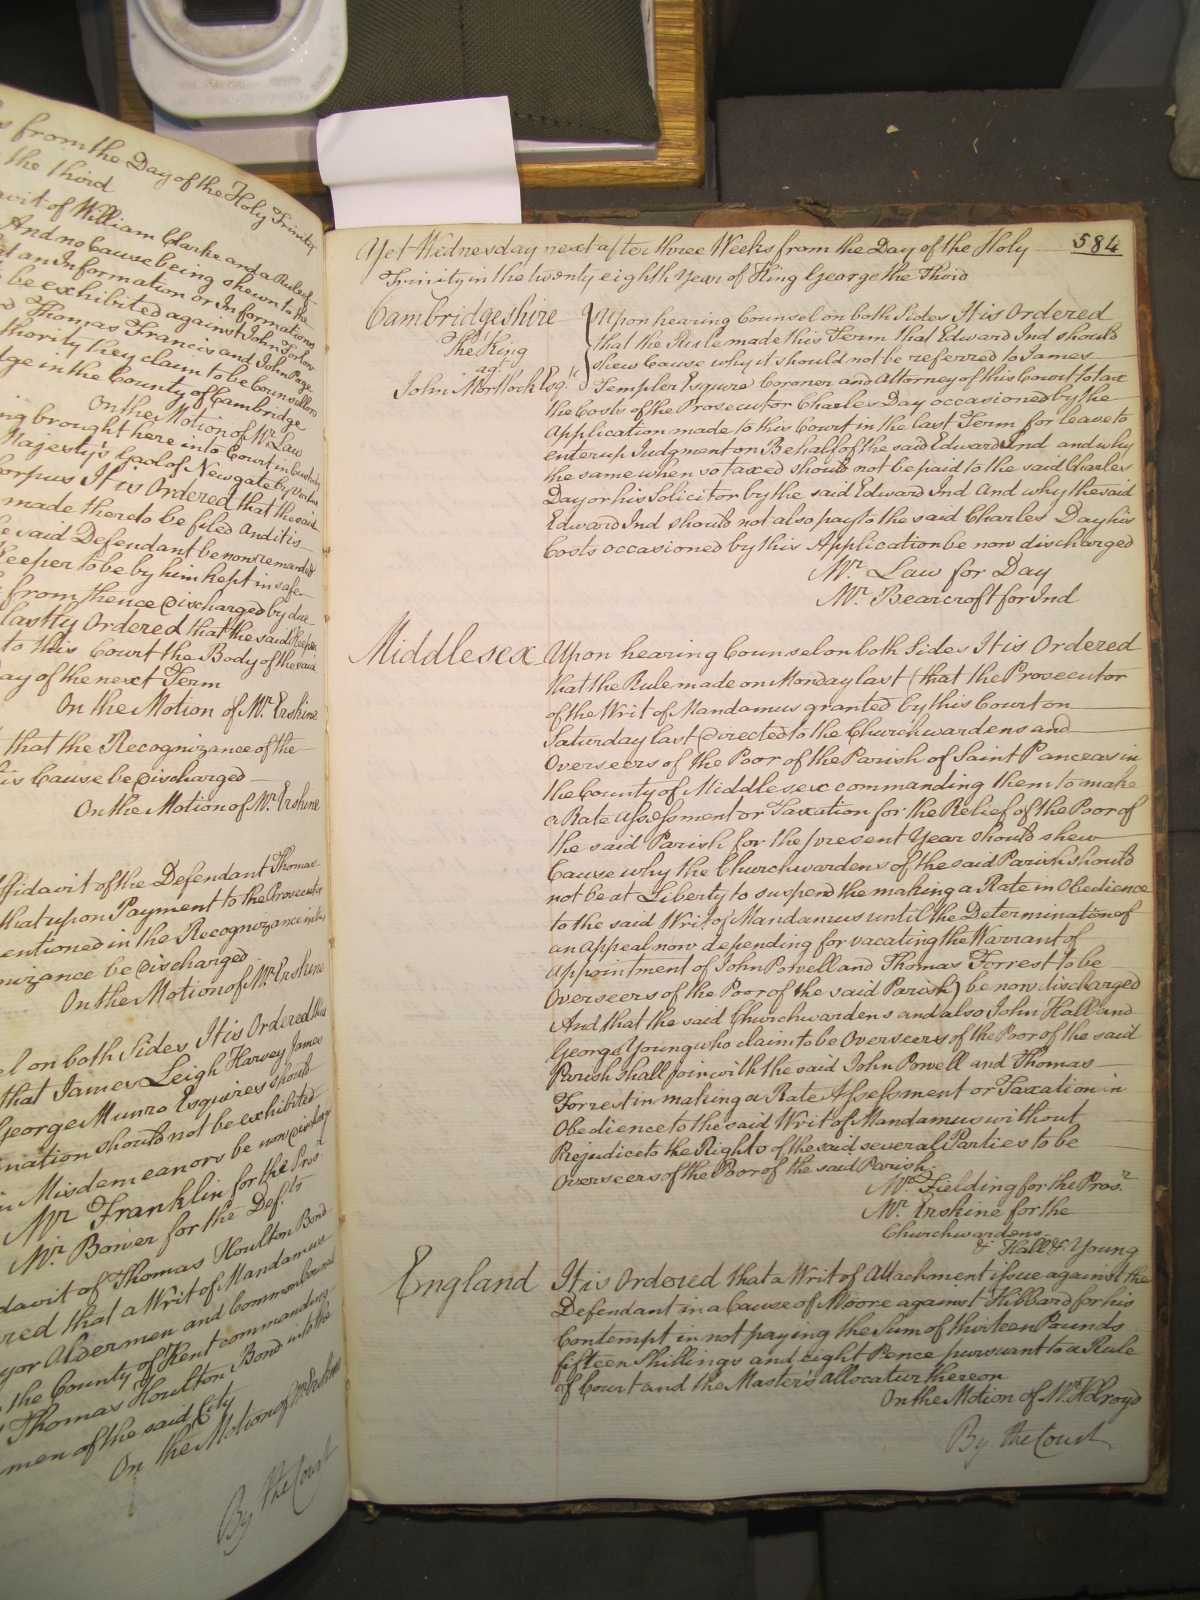 from the Day of the Holy Trinity
the third
of William Clarke and a Rule of
And no Cause being shewn to the
an Information or Informations
be exhibited against John
Thomas Francis and John Page
they claim to be Counsellors
in the County of Cambridge
On the Motion of Mr. Law
brought here into Court in Custody
Majesty's Gaol of Newgate by
It is Ordered that the said
made thereto be filed And it is
said Defendant be now remanded
Keeper to be by him kept in safe
from thence discharged by due
lastly Ordered that the said Keeper
to this Court the Body of the said
of the next Term
On the Motion of Mr. Erskine
that the Recognizance of the
Cause be discharged
On the Motion of Mr. Erskine
of the Defendant Thomas
that upon Payment to the Prosecutor
in the Recognizance
be discharged
On the Motion of Mr. Erskine
on both Sides It is Ordered
that James Leigh Harvey James
George Munro Esquires should
should not be exhibited
Misdemeanors be now
Mr. Franklin for the Pros.r
Mr. Bower for the Def.ts
of Thomas Houlton Bond
that a Writ of Mandamus
Aldermen and
the County of Kent commanding
Thomas Houlton Bond into the
of the said City
On the Motion of Mr. Erskine
By the Court
584
Yet Wednesday next after three Weeks from the Day of the Holy
Trinity in the twenty eighth Year of King George the Third
Cambridgeshire
The King
ag.t
John Mortlock Esq.r
Upon hearing Counsel on both Sides It is Ordered
that the Rule made this Term that Edward Ind should
shew Cause why it should not be referred to James
Templer Esquire Coroner and Attorney of this Court to tax
the Costs of the Prosecutor Charles Day occasioned by the
Application made to this Court in the last Term for leave to
enter up Judgment on Behalf of the said Edward Ind and why
the same when so taxed should not be paid to the said Charles
Day or his Solicitor by the said Edward Ind And why the said
Edward Ind should not also pay to the said Charles Day his
Costs occasioned by this Application be now discharged
Mr. Law for Day
Mr. Bearcroft for Ind
Middlesex
Upon hearing Counsel on both Sides It is Ordered
that the Rule made on Monday last (that the Prosecutor
of the Writ of Mandamus granted by this Court on
Saturday last directed to the Churchwardens and
Overseers of the Poor of the Parish of Saint Pancras in
the County of Middlesex commanding them to make
a Rate Assessment or Taxation for the Relief of the Poor of
the said Parish for the present Year should shew
Cause why the Churchwardens of the said Parish should
not be at Liberty to suspend the making a Rate in Obedience
to the said Writ of Mandamus until the Determination of
an Appeal now depending for vacating the Warrant of
Appointment of John Powell and Thomas Forrest to be
Overseers of the Poor of the said Parish) be now discharged
And that the said Churchwardens and also John Hall and
George Young who claim to be Overseers of the Poor of the said
Parish shall join with the said John Powell and Thomas
Forrest in making a Rate Assessment or Taxation in
Obedience to the said Writ of Mandamus without
Prejudice to the Rights of the said several Parties to be
Overseers of the Poor of the said Parish
Mr. Fielding for the Pros.r
Mr. Erskine for the
Churchwardens
& Hall & Young
England
It is Ordered that a Writ of Attachment issue against the
Defendant in a Cause of Moore against Hibbard for his
Contempt in not paying the Sum of thirteen Pounds
fifteen Shillings and eight Pence pursuant to a Rule
of Court and the Master's Allocatur thereon
On the Motion of Mr. Holroyd
By the Court